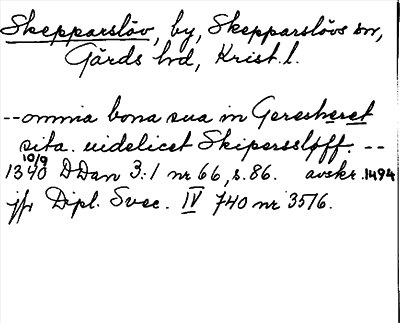 Skepparslöv, by, Skepparslövs sn,
Gärds hd, Krist. l.
-- omnia bona sua in Geresheret
sita. uidelicet Skiperssløff. --
1340 10/9 DDan 3:1 nr 66, s. 86. avskr. 1494
jfr Dipl. Svec. IV 740 nr 3516.